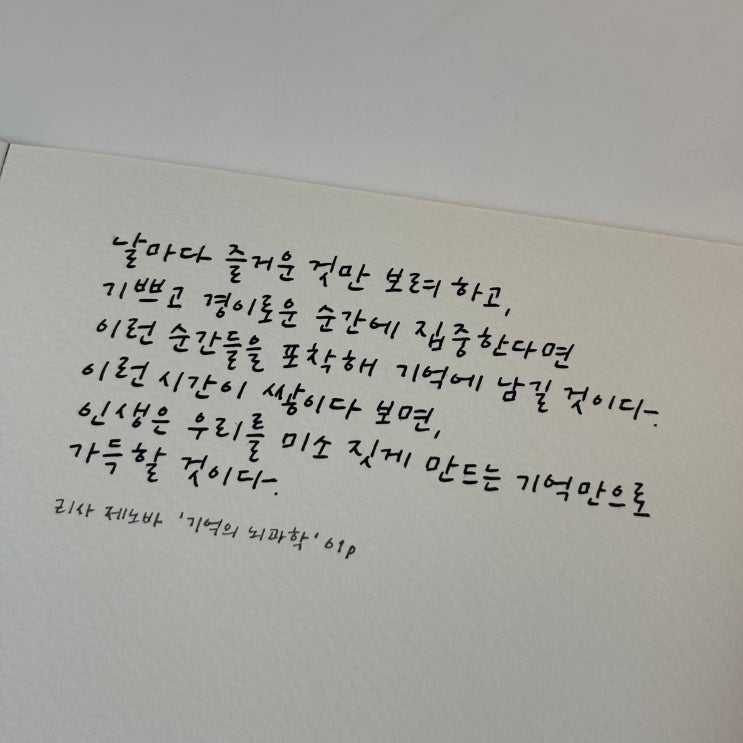 날마다 즐거운 것만 보려 하고,
기쁘고 경이로운 순간에 집중한다면
이런 순간들을 포착해 기억에 남길 것이다.
이런 시간이 쌓이다 보면,
인생은 우리를 미소 짓게 만드는 기억만으로
가득할 것이다.
리사 제노바 '기억의 뇌과학' 61p